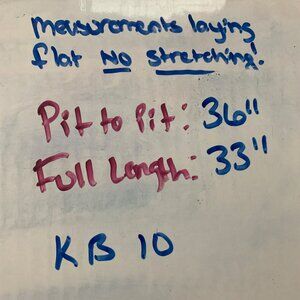 measurements laying
flat NO stretching!
Pit to Pit: 36"
Full Length: 33"
KB 10